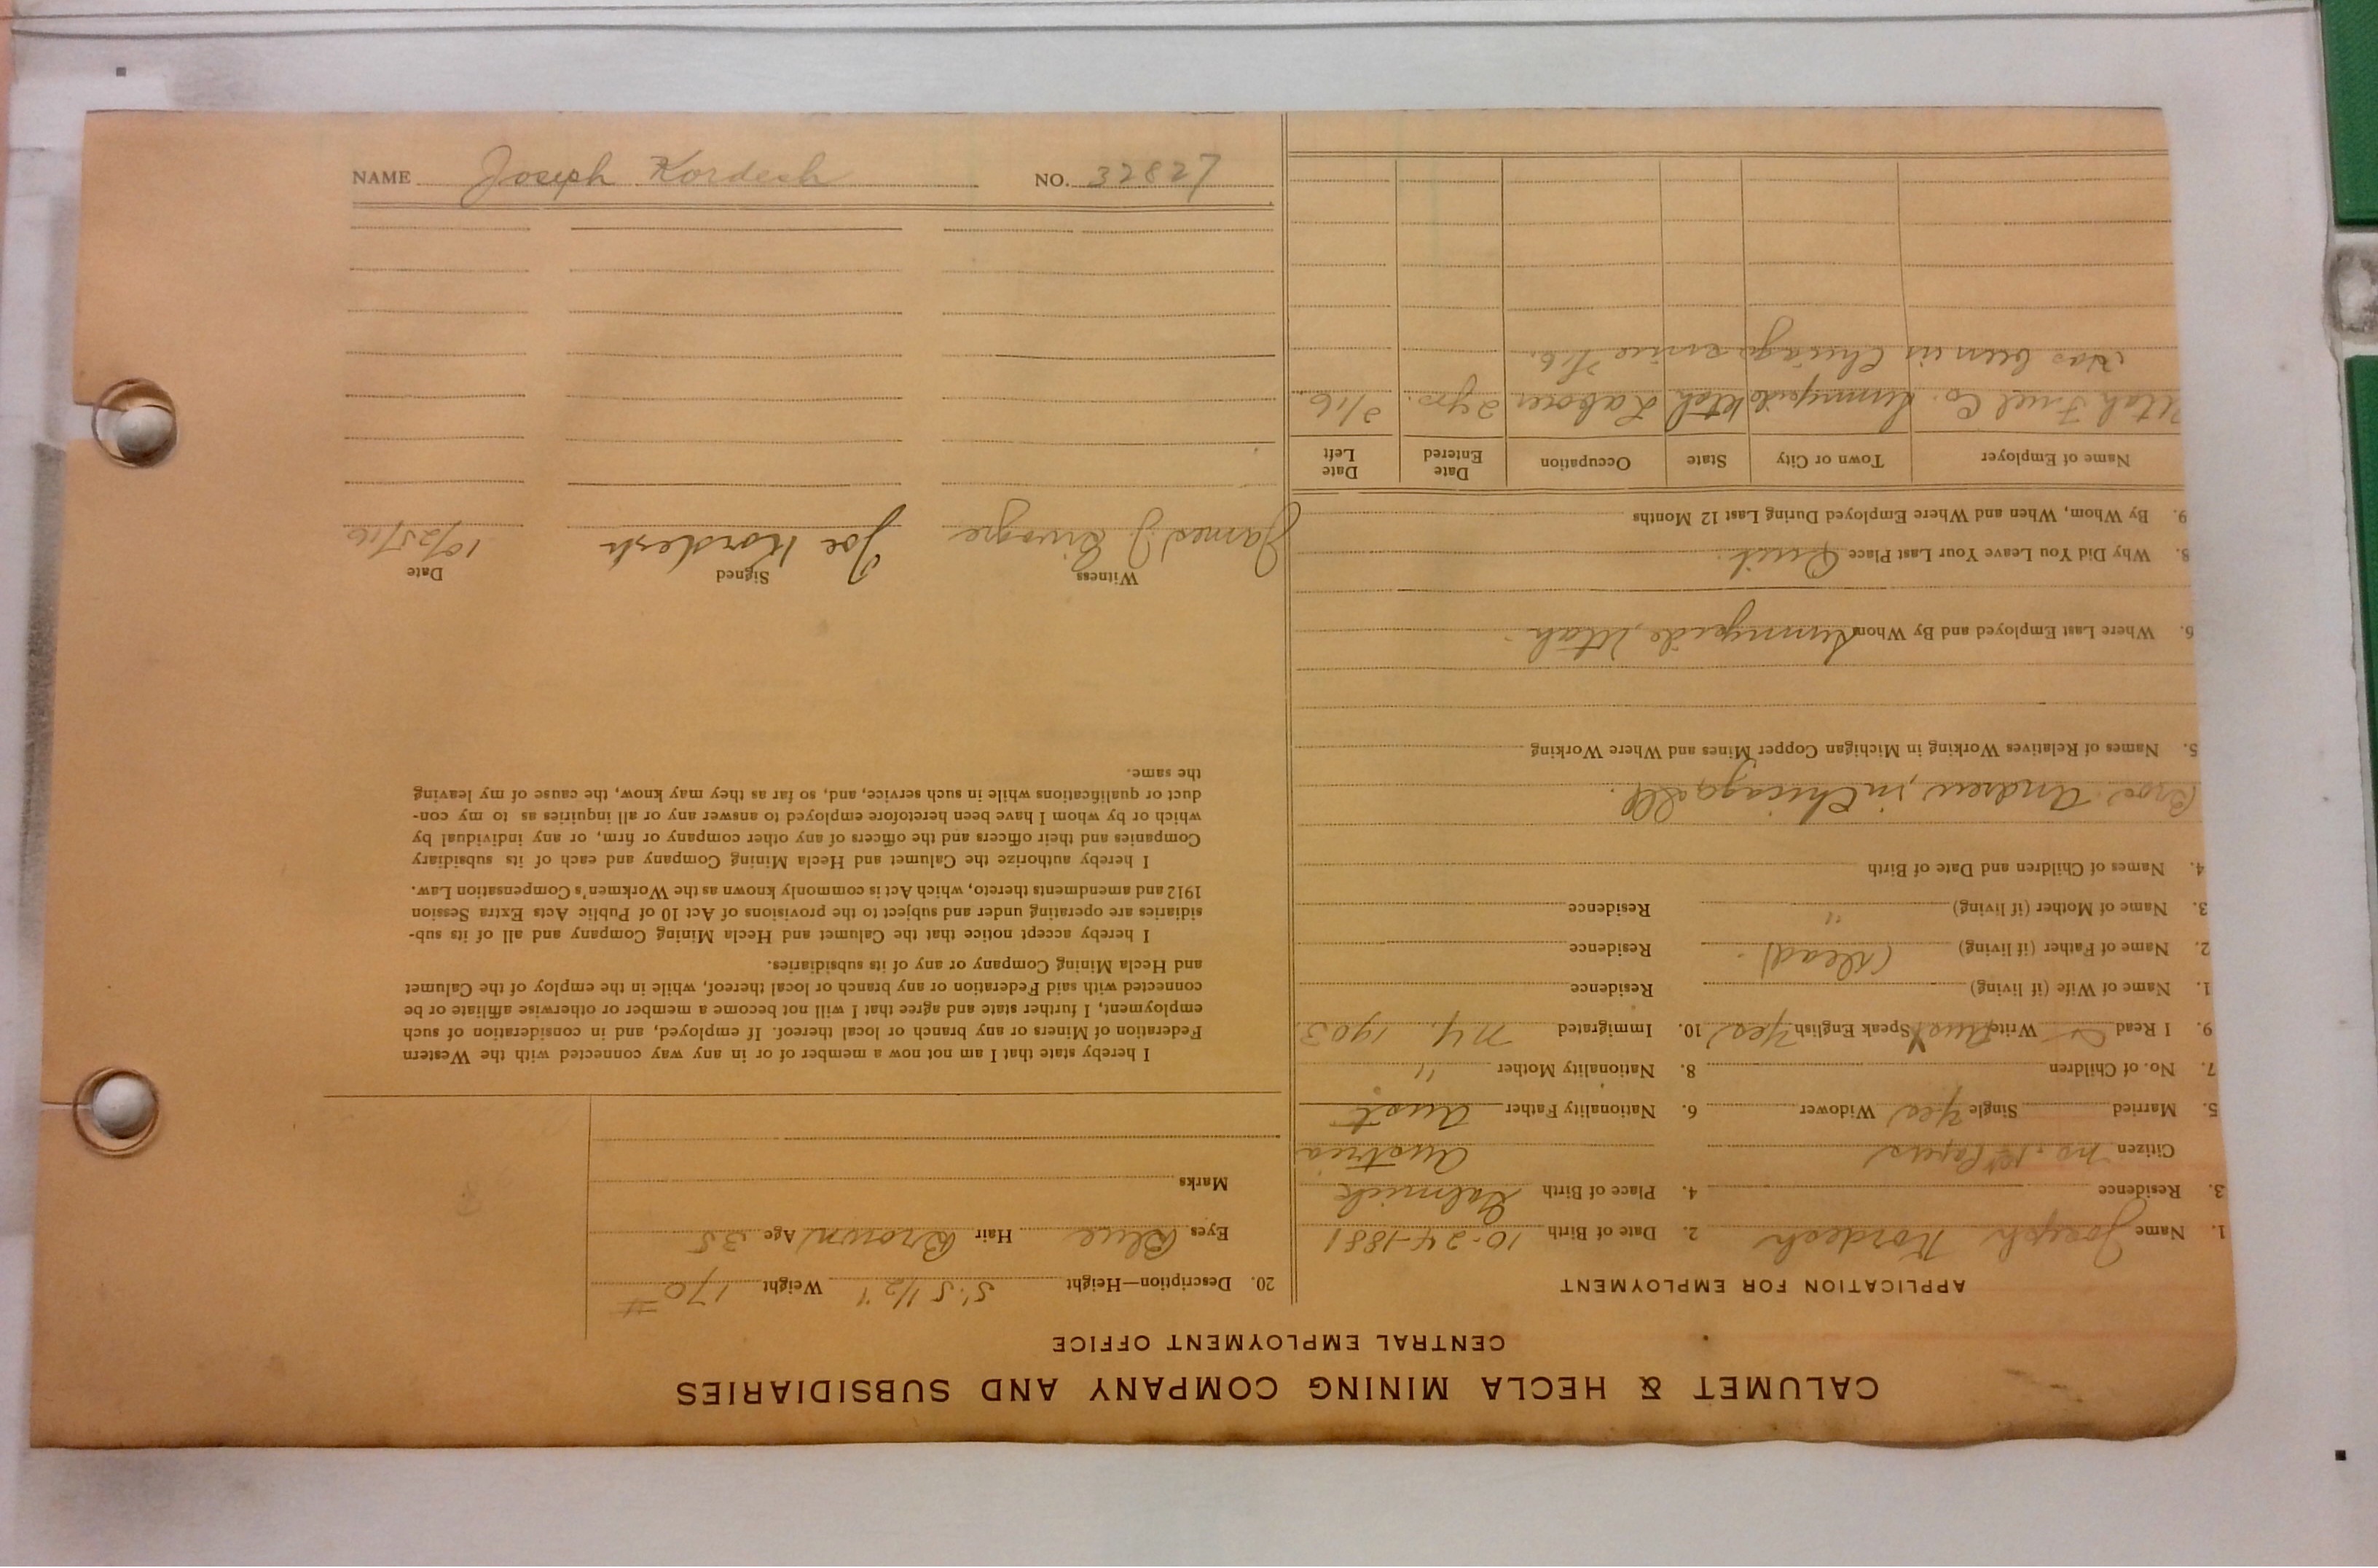 CALUMET & HECLA MINING COMPANY AND SUBSIDIARIES
CENTRAL EMPLOYMENT OFFICE
APPLICATION FOR EMPLOYMENT
1. Name Joseph Kordesh 2. Date of Birth 10-24-1881
3. Residence 4. Place of Birth
Citizen no. 1st Papers Austria
5. Married Single Yes Widower 6. Nationality Father Aust
7. No. of Children 8. Nationality Mother "
9. I Read Write Speak English Yes 10. Immigrated N.Y. 1903
1. Name of Wife (if living) Residence
2. Name of Father (if living) (Dead) Residence
3. Name of Mother (if living) " Residence
4. Names of Children and Date of Birth
Bros. Andrew, in Chicago, Ill.
5. Names of Relatives Working in Michigan Copper Mines and Where Working
6. Where Last Employed and By Whom Sunnyside, Utah
8. Why Did You Leave Your Last Place Quit.
9. By Whom, When and Where Employed During Last 12 Months
Name of Employer Town or City State Occupation Date Entered Date Left
Utah Fuel Co. Sunnyside Utah Laborer 2 yrs. 2/16
Has been in Chicago since 2/16.
20. Description—Height 5'. 5 1/2" Weight 170 #
Eyes Blue Hair Brown Age 35
Marks
I hereby state that I am not now a member of or in any way connected with the Western
Federation of Miners or any branch or local thereof. If employed, and in consideration of such
employment, I further state and agree that I will not become a member or otherwise affiliate or be
connected with said Federation or any branch or local thereof, while in the employ of the Calumet
and Hecla Mining Company or any of its subsidiaries.
I hereby accept notice that the Calumet and Hecla Mining Company and all of its sub-
sidiaries are operating under and subject to the provisions of Act 10 of Public Acts Extra Session
1912 and amendments thereto, which Act is commonly known as the Workmen's Compensation Law.
I hereby authorize the Calumet and Hecla Mining Company and each of its subsidiary
Companies and their officers and the officers of any other company or firm, or any individual by
which or by whom I have been heretofore employed to answer any or all inquiries as to my con-
duct or qualifications while in such service, and, so far as they may know, the cause of my leaving
the same.
Witness Signed Date
James J. Joe Kordesh 10/25/16
NAME Joseph Kordesh NO. 32827